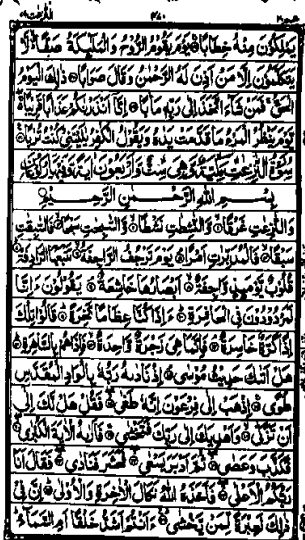 النّٰزعٰت ٧٩
٣٨٠
عمّ ٣٠
يَمْلِكُوْنَ مِنْهُ خِطَابًا ۞ يَوْمَ يَقُوْمُ الرُّوْحُ وَالْمَلٰٓئِكَةُ صَفًّا ۙ لَّا
يَتَكَلَّمُوْنَ اِلَّا مَنْ اَذِنَ لَهُ الرَّحْمٰنُ وَقَالَ صَوَابًا ۞ ذٰلِكَ الْيَوْمُ
الْحَقُّ ۚ فَمَنْ شَآءَ اتَّخَذَ اِلٰى رَبِّهٖ مَاٰبًا ۞ اِنَّآ اَنْذَرْنٰكُمْ عَذَابًا قَرِيْبًا ۚ
يَّوْمَ يَنْظُرُ الْمَرْءُ مَا قَدَّمَتْ يَدٰهُ وَيَقُوْلُ الْكٰفِرُ يٰلَيْتَنِيْ كُنْتُ تُرٰبًا ۞
سُوْرَةُ النّٰزِعٰتِ مَكِّيَّةٌ وَّهِيَ سِتٌّ وَّاَرْبَعُوْنَ اٰيَةً وَّفِيْهَا
بِسْمِ اللّٰهِ الرَّحْمٰنِ الرَّحِيْمِ
وَالنّٰزِعٰتِ غَرْقًا ۞ وَّالنّٰشِطٰتِ نَشْطًا ۞ وَّالسّٰبِحٰتِ سَبْحًا ۞ فَالسّٰبِقٰتِ
سَبْقًا ۞ فَالْمُدَبِّرٰتِ اَمْرًا ۞ يَوْمَ تَرْجُفُ الرَّاجِفَةُ ۞ تَتْبَعُهَا الرَّادِفَةُ ۞
قُلُوْبٌ يَّوْمَئِذٍ وَّاجِفَةٌ ۞ اَبْصَارُهَا خَاشِعَةٌ ۞ يَقُوْلُوْنَ ءَاِنَّا
لَمَرْدُوْدُوْنَ فِي الْحَافِرَةِ ۞ ءَاِذَا كُنَّا عِظَامًا نَّخِرَةً ۞ قَالُوْا تِلْكَ
اِذًا كَرَّةٌ خَاسِرَةٌ ۞ فَاِنَّمَا هِيَ زَجْرَةٌ وَّاحِدَةٌ ۞ فَاِذَا هُمْ بِالسَّاهِرَةِ ۞
هَلْ اَتٰىكَ حَدِيْثُ مُوْسٰى ۞ اِذْ نَادٰىهُ رَبُّهٗ بِالْوَادِ الْمُقَدَّسِ
طُوًى ۞ اِذْهَبْ اِلٰى فِرْعَوْنَ اِنَّهٗ طَغٰى ۞ فَقُلْ هَلْ لَّكَ اِلٰٓى
اَنْ تَزَكّٰى ۞ وَاَهْدِيَكَ اِلٰى رَبِّكَ فَتَخْشٰى ۞ فَاَرٰىهُ الْاٰيَةَ الْكُبْرٰى ۞
فَكَذَّبَ وَعَصٰى ۞ ثُمَّ اَدْبَرَ يَسْعٰى ۞ فَحَشَرَ فَنَادٰى ۞ فَقَالَ اَنَا
رَبُّكُمُ الْاَعْلٰى ۞ فَاَخَذَهُ اللّٰهُ نَكَالَ الْاٰخِرَةِ وَالْاُوْلٰى ۞ اِنَّ فِيْ
ذٰلِكَ لَعِبْرَةً لِّمَنْ يَّخْشٰى ۞ ءَاَنْتُمْ اَشَدُّ خَلْقًا اَمِ السَّمَآءُ